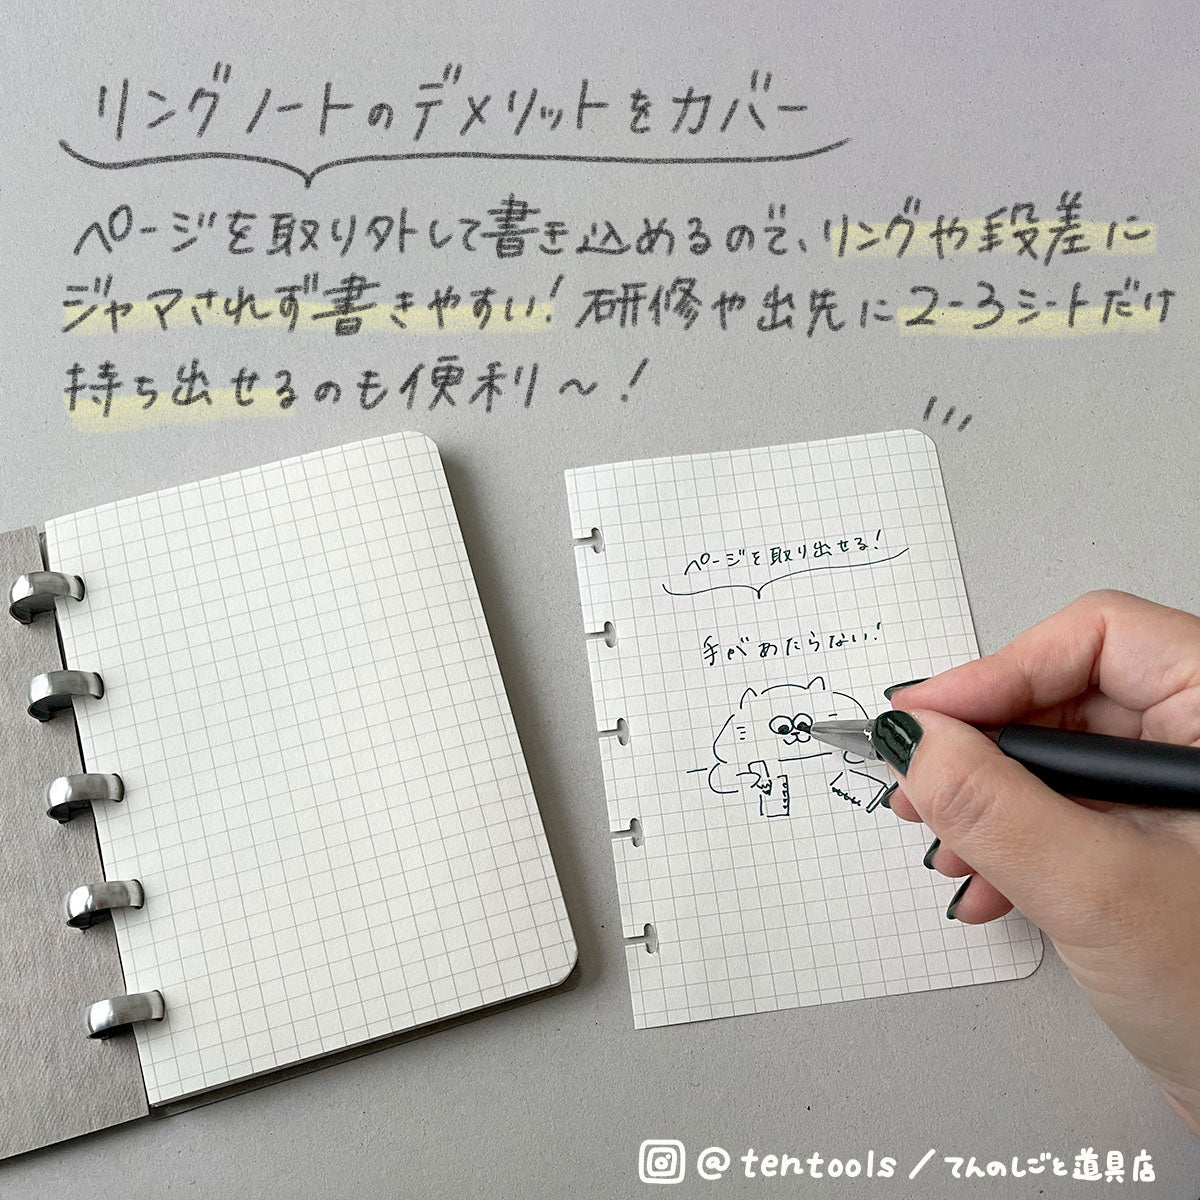 リングノートのデメリットをカバー
ページを取り外して書き込めるので、リングや段差に
ジャマされず書きやすい！研修や出先に2-3シートだけ
持ち出せるのも便利〜！
ページを取り出せる！
手があたらない！
@tentools／てんのしごと道具店